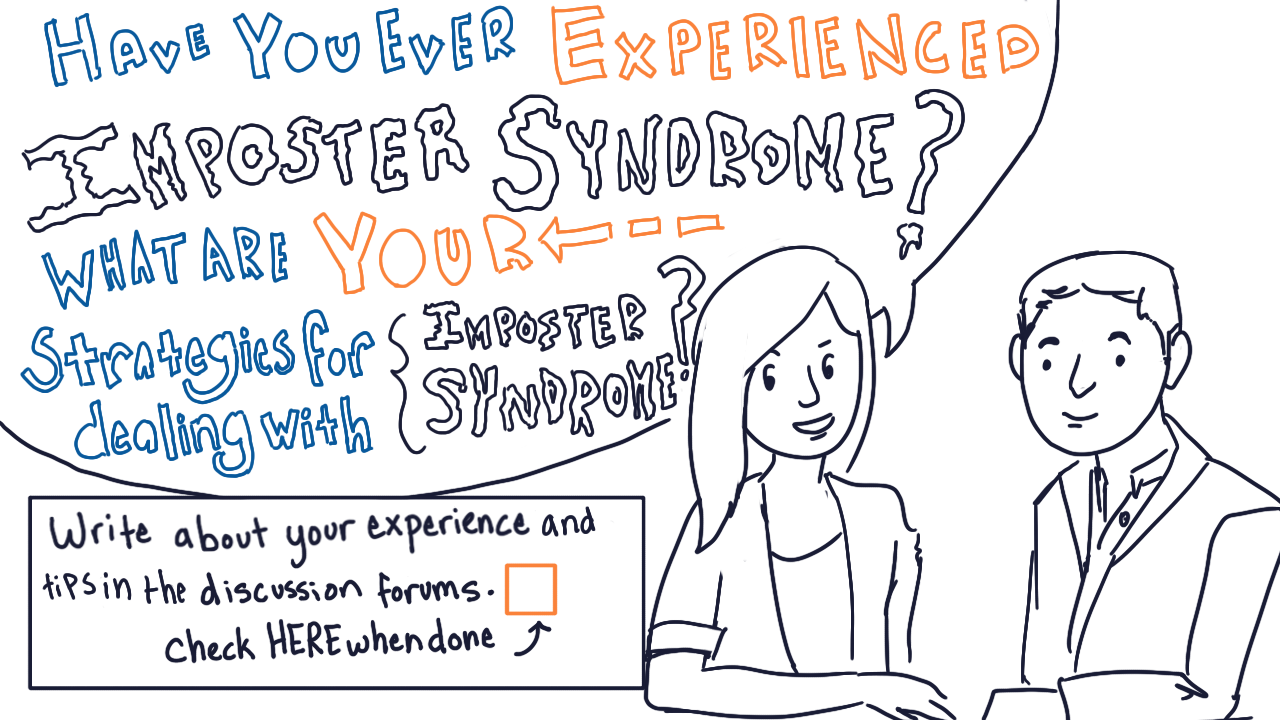 HAVE YOU EVER EXPERIENCED
IMPOSTER SYNDROME?
WHAT ARE YOUR
Strategies for
dealing with
IMPOSTER
SYNDROME?
Write about your experience and
tips in the discussion forums.
check HERE when done